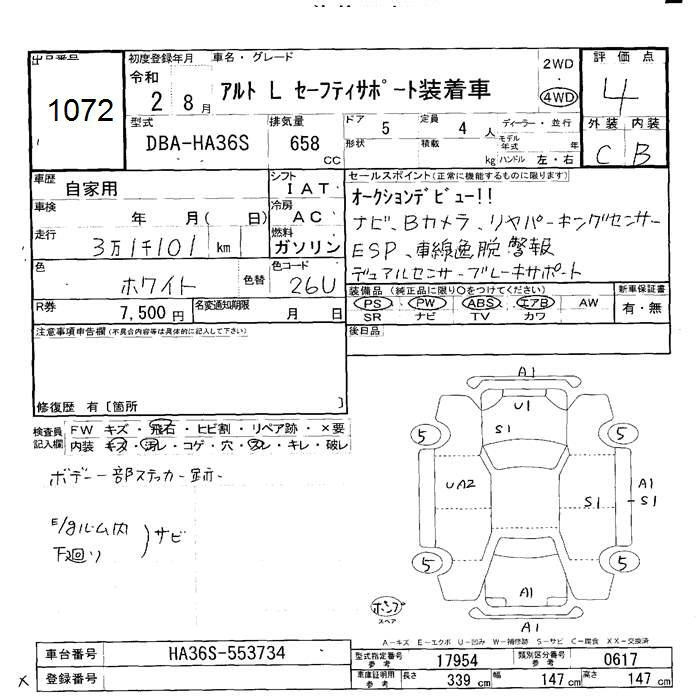 出品番号
1072
初度登録年月
令和
2 8月
車名・グレード
アルト L セーフティサポート装着車
2WD
4WD
評価点
4
型式
DBA-HA36S
排気量
658
CC
ドア
5
定員
4
人
ディーラー・並行
形状
積載
kg
モデル
年式
年
ハンドル 左・右
外装 内装
C B
車歴
自家用
シフト
IAT
車検
年 月( 日)
冷房
AC
走行
3万1千101 km
燃料
ガソリン
色
ホワイト
色替
色コード
26U
R券
7,500円
名変通知期限
月 日
セールスポイント(正常に機能するものに限ります)
オークションデビュー!!
ナビ、Bカメラ、リヤパーキングセンサー
ESP、車線逸脱警報
デュアルセンサーブレーキサポート
装備品(純正品に限り○をつけてください)
新車保証書
PS PW ABS エアB AW
SR ナビ TV カワ
有・無
後日品
注意事項申告欄(不具合内容等は具体的に記入して下さい)
修復歴 有〔箇所 〕
検査員
記入欄
FW キズ・飛石・ヒビ割・リペア跡・×要
内装 キズ・汚レ・コゲ・穴・スレ・キレ・破レ
ボデー一部ステッカー跡
E/gルーム内
下廻り
サビ
A1
U1
S1
5
5
UA2
S1
A1
S1
5
5
A1
A1
ポンプ
スペア
A-キズ E-エクボ U-凹み W-補修跡 S-サビ C-腐食 XX-交換済
車台番号
HA36S-553734
登録番号
型式指定番号
参考
17954
類別区分番号
参考
0617
車庫証明用
参考
長さ
339 cm
幅
147 cm
高さ
147 cm
×